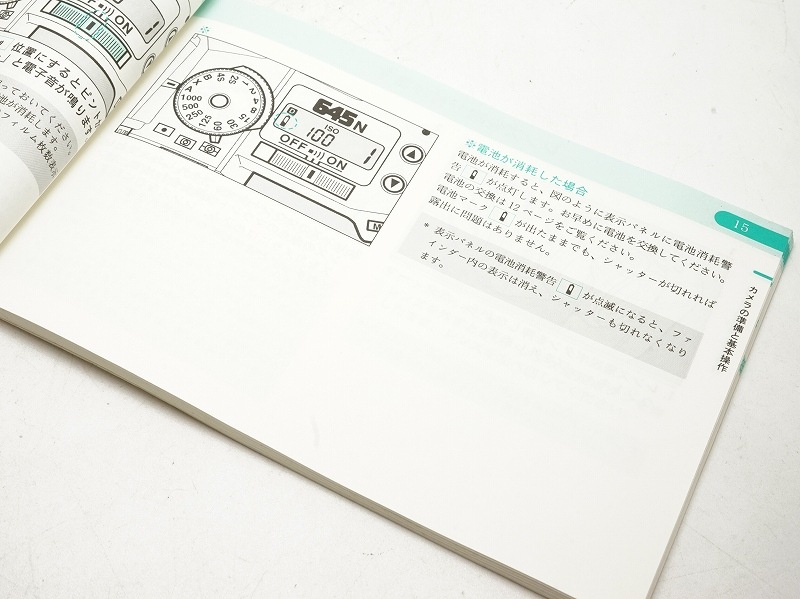 位置にするとピント
」と電子音が鳴ります
っておいてください。
池が消耗します。
フィルム枚数あ
645N
ISO
100
OFF
ON
1
A
1000
500
250
125
60
30
15
8
4S
2S
B
X
M
15
カメラの準備と基本操作
電池が消耗した場合
電池が消耗すると、図のように表示パネルに電池消耗警
告 が点灯します。お早めに電池を交換してください。
電池の交換は12ページをご覧ください。
電池マーク が出たままでも、シャッターが切れれば
露出に問題はありません。
* 表示パネルの電池消耗警告 が点滅になると、ファ
インダー内の表示は消え、シャッターも切れなくなり
ます。